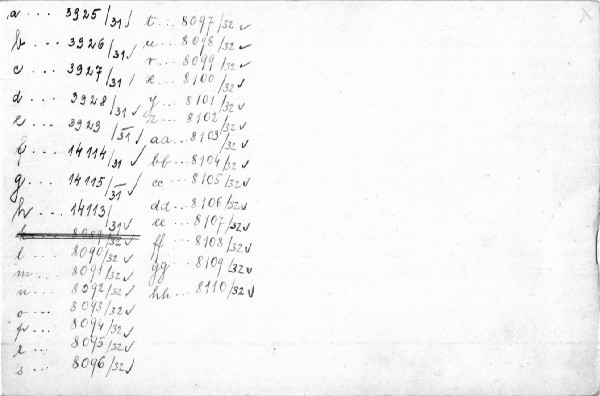 a ... 3925/31 ✓
b ... 3926/31 ✓
c ... 3927/31 ✓
d ... 3928/31 ✓
e ... 3929/31 ✓
f ... 14114/31 ✓
g ... 14115/31 ✓
h ... 14113/31 ✓
k ... 8089/32 ✓
l ... 8090/32 ✓
m ... 8091/32 ✓
n ... 8092/32 ✓
o ... 8093/32 ✓
p ... 8094/32 ✓
r ... 8095/32 ✓
s ... 8096/32 ✓
t ... 8097/32 ✓
u ... 8098/32 ✓
v ... 8099/32 ✓
x ... 8100/32 ✓
y ... 8101/32 ✓
z ... 8102/32 ✓
aa ... 8103/32 ✓
bb ... 8104/32 ✓
cc ... 8105/32 ✓
dd ... 8106/32 ✓
ee ... 8107/32 ✓
ff ... 8108/32 ✓
gg ... 8109/32 ✓
hh ... 8110/32 ✓
X